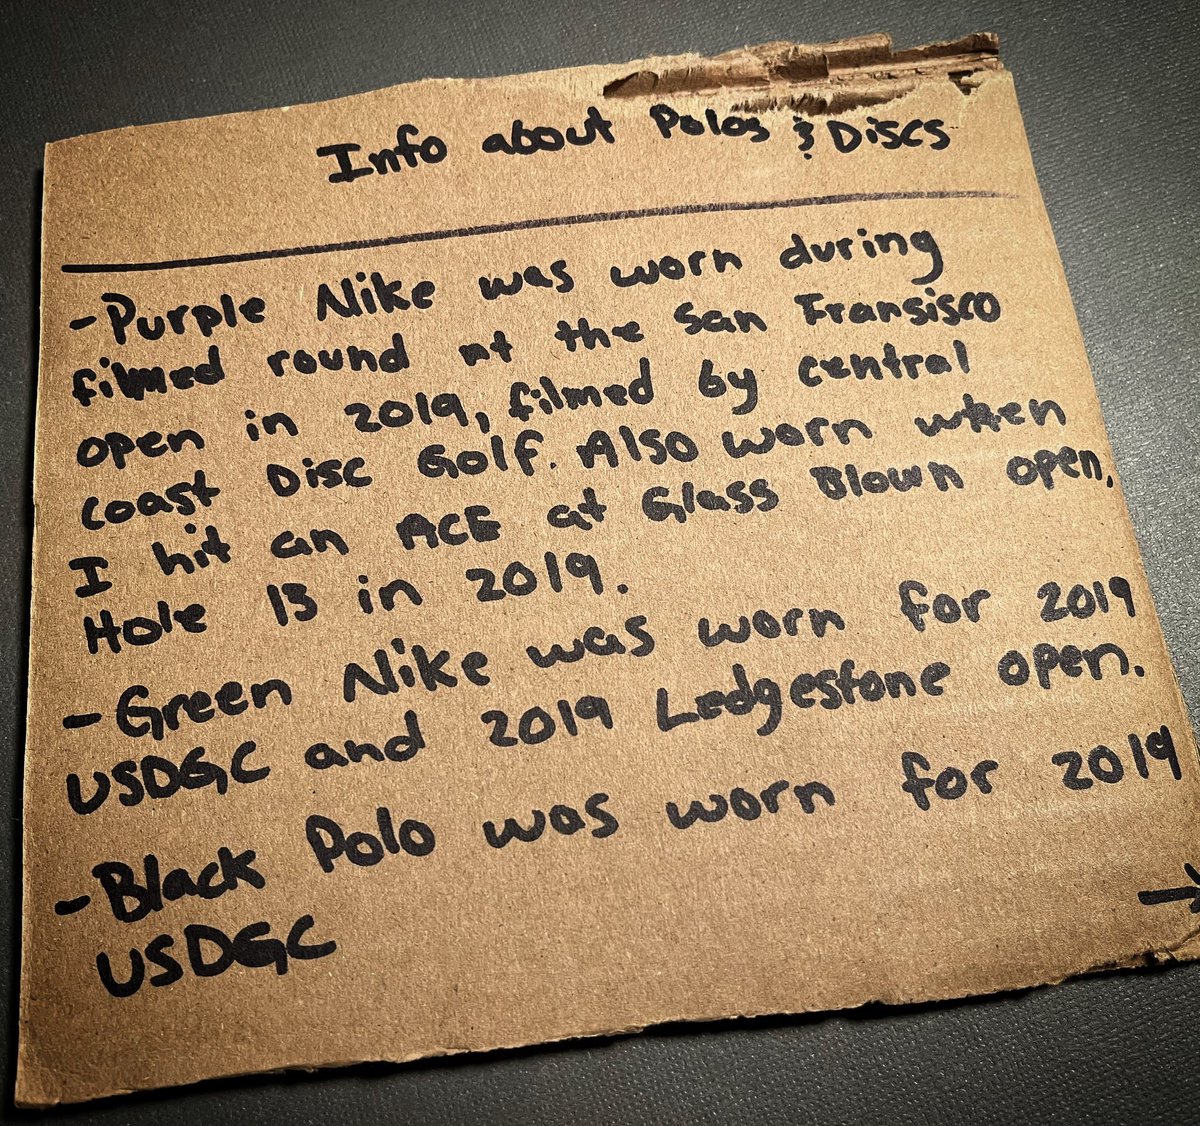 Info about Polos & Discs
- Purple Nike was worn during
filmed round at the San Fransisco
open in 2019, filmed by central
coast Disc Golf. Also worn when
I hit an ACE at Glass Blown open,
Hole 13 in 2019.
- Green Nike was worn for 2019
USDGC and 2019 Ledgestone open.
- Black Polo was worn for 2019
USDGC
→